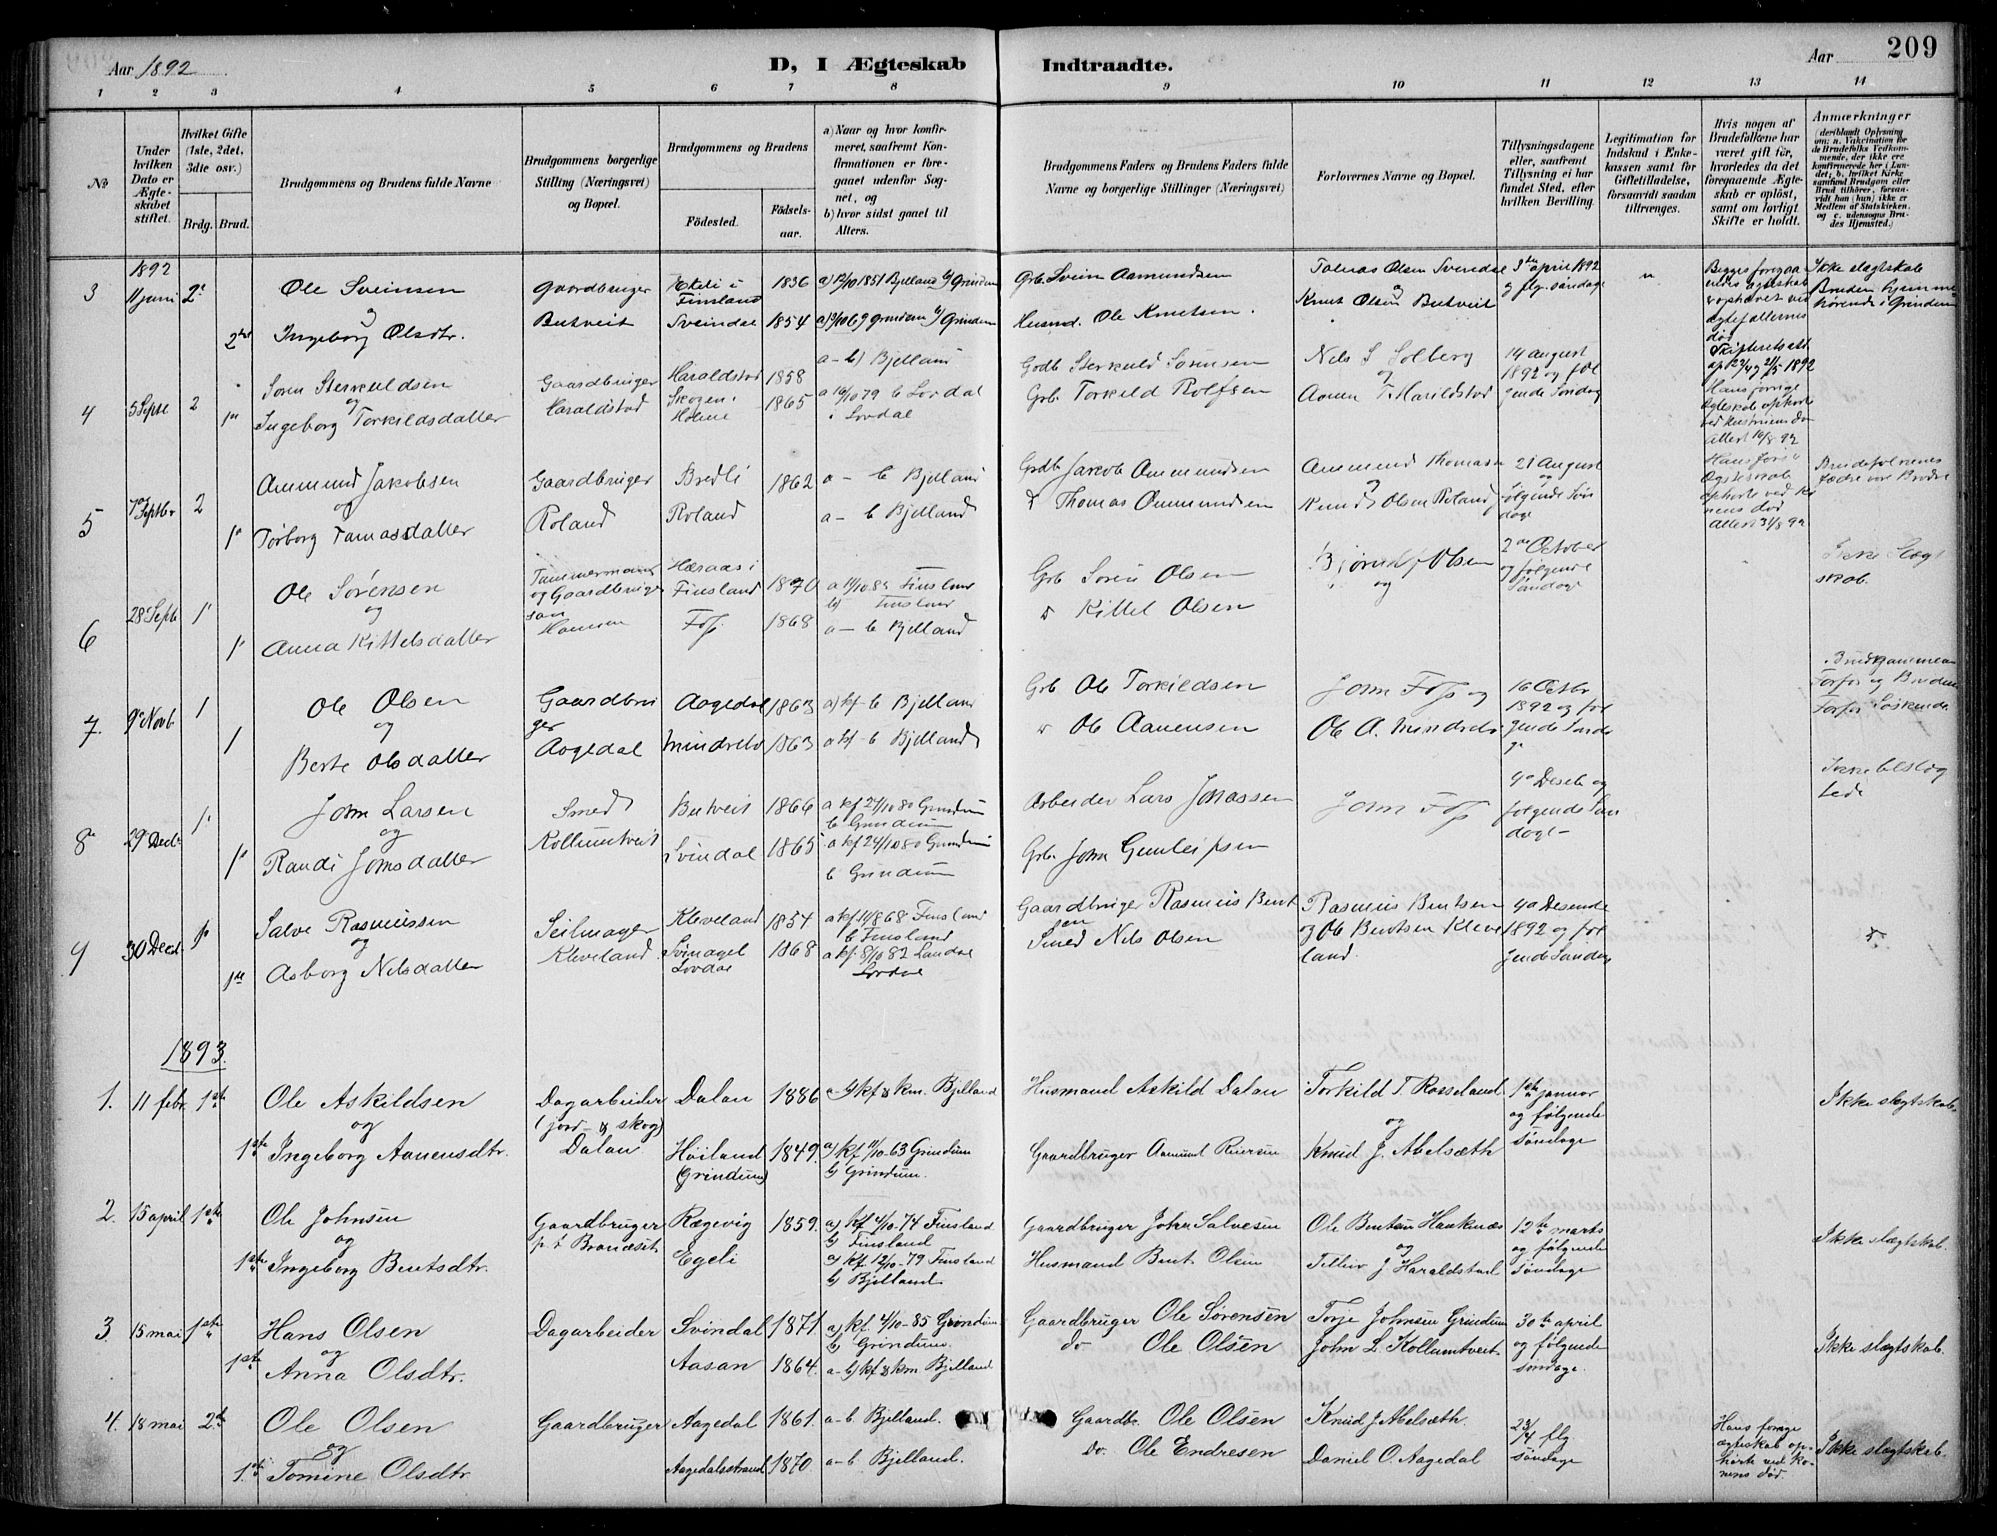 Aar 1892
D, I Ægteskab
Indtraadte.
Aar
209
1 2 3 4 5 6 7 8 9 10 11 12 13 14
No
Under hvilken Dato er Ægteskabet stiftet.
Hvilket Gifte (1ste, 2det, 3die osv.)
Brdg. Brud.
Brudgommens og Brudens fulde Navne
Brudgommens borgerlige Stilling (Næringsvei) og Bopæl.
Brudgommens og Brudens
Fødested.
Fødselsaar.
a) Naar og hvor konfirmeret, saafremt Konfirmationen er foregaaet udenfor Sognet, og
b) hvor sidst gaaet til Alters.
Brudgommens Faders og Brudens Faders fulde Navne og borgerlige Stillinger (Næringsvei)
Forlovernes Navne og Bopæl.
Tillysningsdagene eller, saafremt Tillysning ei har fundet Sted, efter hvilken Bevilling.
Legitimation for Indskud i Enkekassen samt for Giftetilladelse, forsaavidt saadan tiltrænges.
Hvis nogen af Brudefolkene har været gift før, hvorledes da det foregaaende Ægteskab er opløst, samt om lovligt Skifte er holdt.
Anmærkninger (deriblandt Oplysning om: a. Vakcination for de Brudefolks Vedkommende, der ikke ere konfirmerede her i Landet; b. hvilket Kirkesamfund Brudgom eller Brud tilhører, forsaavidt han (hun) ikke er Medlem af Statskirken, og c. udensogns Brudes Hjemsted.)
1892
3 11 juni 2' Ole Sveinsen Gaardbruger Ekeli i Finsland 1836 a) 12/10 1851 Bjelland b) Grindum Grb. Svein Aamundsen Tolnas Olsen Svendse 3die april 1892 og flg. søndage
og
2det Ingeborg Olsdtr. Butveit Svindal 1854 a) 3/10 69 Grindum b) Grindum Husmd. Ole Knutsen. Knut Olsen Butveit
Begges foregaaende ægteskab ophævet ved ægtefællernes død
Ikke slægtskab Bruden hjemmehørende i Grindum
4 5 Septe 2 Soren Sterkuldsen Gaardbruger Haraldstad 1858 a-b) Bjelland Gdb Sterkuld Sørensen Nels S Solberg 14 august 1892 og følgende Søndag
og
1ste Ingeborg Torkildsdatter Haraldstad Skogen i Holme 1865 a 19/10 79 b Lovdal i Lovdal Grb. Torkild Rolfsen Aanen T. Harildstad
Hans forrige Ægteskab ophørte ved Hustruens død
5 7 Septbr 2 Ammund Jakobsen Gaardbruger Bredli 1862 a - b Bjelland Grdb Jacob Ammundsen Ammund Thomasen 21 August og følgende Søndage
og
1' Torborg Tamasdatter Roland Roland a - b Bjelland d Thomas Ommundsen Knud Olsen Roland
Brudefolkenes Fædre ere Brødre
6 28 Septb 1' Ole Sørensen Tømmermand og Gaardbruger søn Homsen Hæraas i Finsland 1870 a 14/10 85 Finsland b) Finsland Grb Soren Olsen Bjørnulf Olsen og 2den October og følgende Søndage
og
1' Anna Kittelsdatter Foss 1868 a - b Bjelland d Kittel Olsen
Ikke Slægtskab.
7. 9 Novb 1 Ole Olsen Gaardbruger Aagedal 1863 a) kf - b Bjelland Grb Ole Torkildsen John Foss og 16 Octbr 1892 og følgende Søndage
og
1 Berte Olsdatter Aagedal Mindrebø 1863 a kf - b Bjelland d Ole Aanensen Ole A. Mindrebø
Brudgommens Farfar og Brudens Farfar Søskende
8 29 Decb. 1' John Larsen Smed Butveit 1866 a kf 24/10 80 Grindum b Grindum Arbeider Lars Jonassen John Foss 4de Deceb og følgende Søndage
og
1' Randi Jonsdatter Kollumtveit Svindal 1865 a kf 24/10 80 Grindum b Grindum Grb. John Gunleifsen
Ikke beslægtede
9 30 Decb. 1' Salve Rasmussen Seilmager Kleveland 1854 a kf. 14/8 68 Finsland b Finsland Gaardbruger Rasmus Bentsen Rasmus Bentsen og Ole Bentsen Kleveland. 4de Decende 1892 og følgende Søndage
og
1ste Asborg Nilsdatter Kleveland. Svinagel Lovdal 1868 a kf. 8/10 82 Landal Lovdal Smed Nils Olsen
1893.
1. 11 febr. 1ste Ole Askildsen Dagarbeider (jord- & skog) Dalan 1886 a-b) kf & km. Bjelland Husmand Askild Dalan Torkild T. Rosseland 1ste januar og følgende søndage Ikke slægtskab.
og
1ste Ingeborg Aanensdtr. Dalan Høiland (Grindum) 1849. a) kf 11/10-63 Grindum b) Grindum. Gaardbruger Aamund Reiersen Knud J. Abelsæth
2. 15 april 1ste Ole Johnsen Gaardbruger Rægevig 1859. a) kf 4/10-74 Finsland b) Finsland Gaardbruger John Salvesen Ole Bentsen Hauknæs 12te marts og følgende søndage Ikke slægtskab.
og
1ste Ingeborg Bentsdtr. p. t. Brandsit Egeli a) kf. 12/10-79 Finsland b) Bjelland. Husmand Bent Olsen Tellev J Haraldstad
3. 15 mai 1ste Hans Olsen Dagarbeider Svindal 1871. a) kf 4/10-85 Grindum b) Grindum. Gaardbruger Ole Sørensen Torje Johnsen Grindum 30te april og følgende søndage. Ikke slægtskab.
og
1ste Anna Olsdtr. Aasan 1864. a-b) kf & km Bjelland do Ole Olsen John L. Kollumtveit
4. 18 mai 2det Ole Olsen Gaardbruger Aagedal 1861. a-b. Bjelland. Gaardbr. Ole Olsen Knud J. Abelsæth. 23/4 flg. søndage
og
1ste Tomine Olsdtr. Aagedalsstrand 1870. a-b. Bjelland. Do. Ole Endresen Daniel O. Aagedal
Hans forrige ægteskab ophørte ved konens død. Ikke slægtskab.